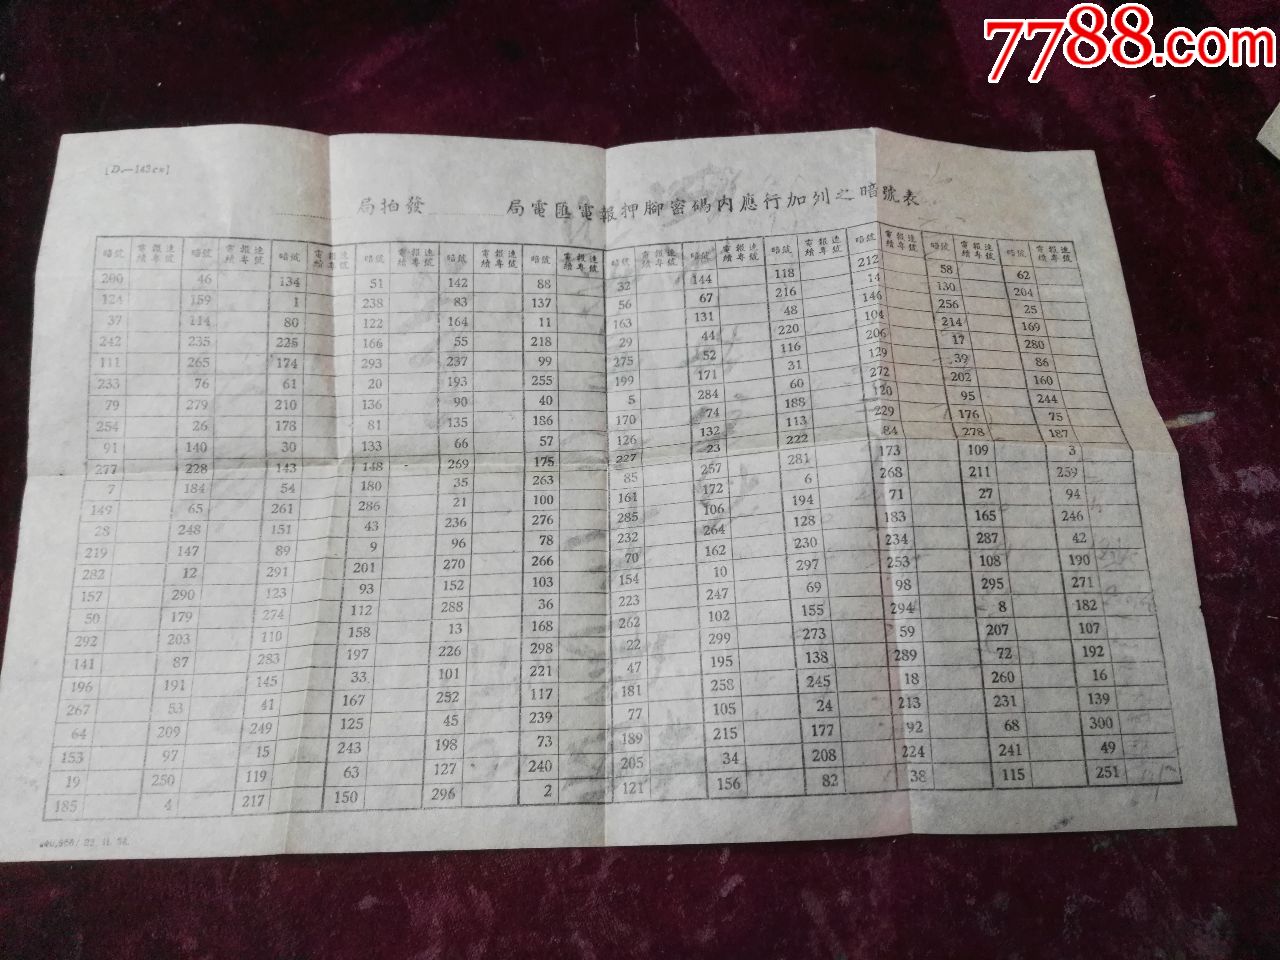 7788.com
[D.—143cx]
局拍發 局電匯電報押腳密碼内應行加列之暗號表
暗號 電報連續專號 暗號 電報連續專號 暗號 電報連續專號 暗號 電報連續專號 暗號 電報連續專號 暗號 電報連續專號 暗號 電報連續專號 暗號 電報連續專號 暗號 電報連續專號 暗號 電報連續專號 暗號 電報連續專號 暗號 電報連續專號
200 46 134 51 142 88 32 144 118 212 58 62
124 159 1 238 83 137 56 67 216 14 130 204
37 114 80 122 164 11 163 131 48 146 256 25
242 235 225 166 55 218 29 44 220 104 214 169
111 265 174 293 237 99 275 52 116 206 17 280
233 76 61 20 193 255 199 171 31 129 39 86
79 279 210 136 90 40 5 284 60 272 202 160
254 26 178 81 135 186 170 74 188 120 95 244
91 140 30 133 66 57 126 132 113 229 176 75
277 228 143 148 269 175 227 23 222 84 278 187
7 184 54 180 35 263 85 257 281 173 109 3
149 65 261 286 21 100 161 172 6 268 211 259
28 248 151 43 236 276 285 106 194 71 27 94
219 147 89 9 96 78 232 264 128 183 165 246
282 12 291 201 270 266 70 162 230 234 287 42
157 290 123 93 152 103 154 10 297 253 108 190
50 179 274 112 288 36 223 247 69 98 295 271
292 203 110 158 13 168 262 102 155 294 8 182
141 87 283 197 226 298 22 299 273 59 207 107
196 191 145 33 101 221 47 195 138 289 72 192
267 53 41 167 252 117 181 258 245 18 260 16
64 209 249 125 45 239 77 105 24 213 231 139
153 97 15 243 198 73 189 215 177 92 68 300
19 250 119 63 127 240 205 34 208 224 241 49
185 4 217 150 296 2 121 156 82 38 115 251